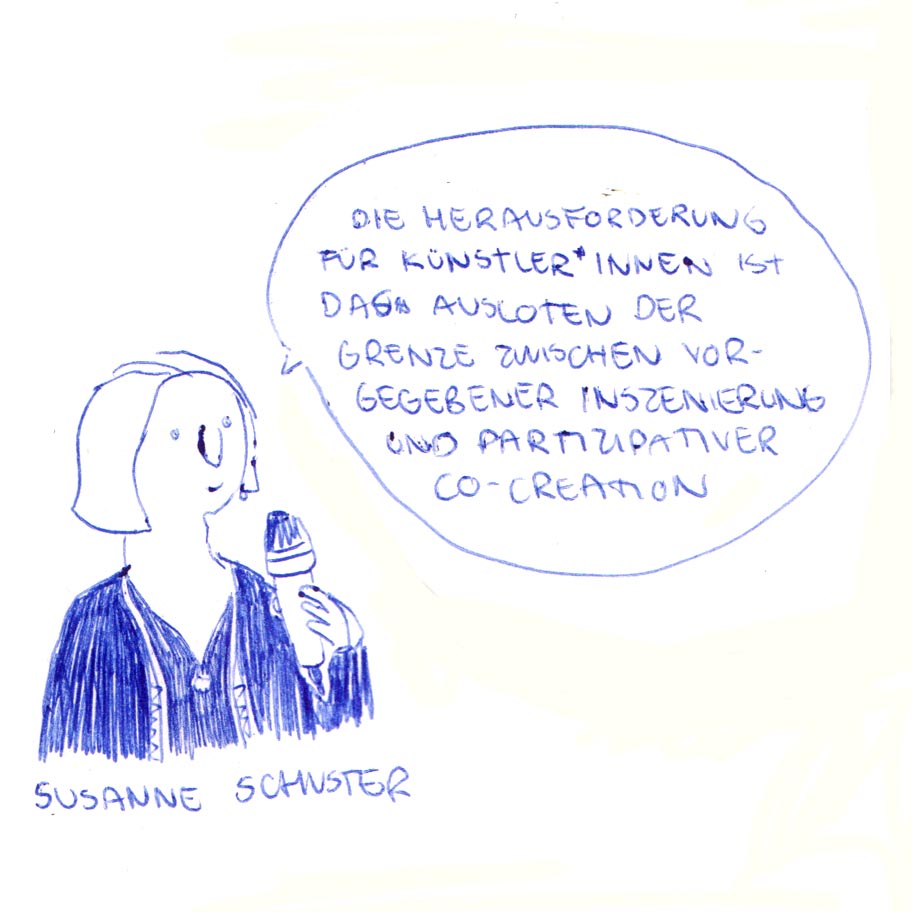 DIE HERAUSFORDERUNG
FÜR KÜNSTLER*INNEN IST
DAS AUSLOTEN DER
GRENZE ZWISCHEN VOR-
GEGEBENER INSZENIERUNG
UND PARTIZIPATIVER
CO-CREATION
SUSANNE SCHUSTER